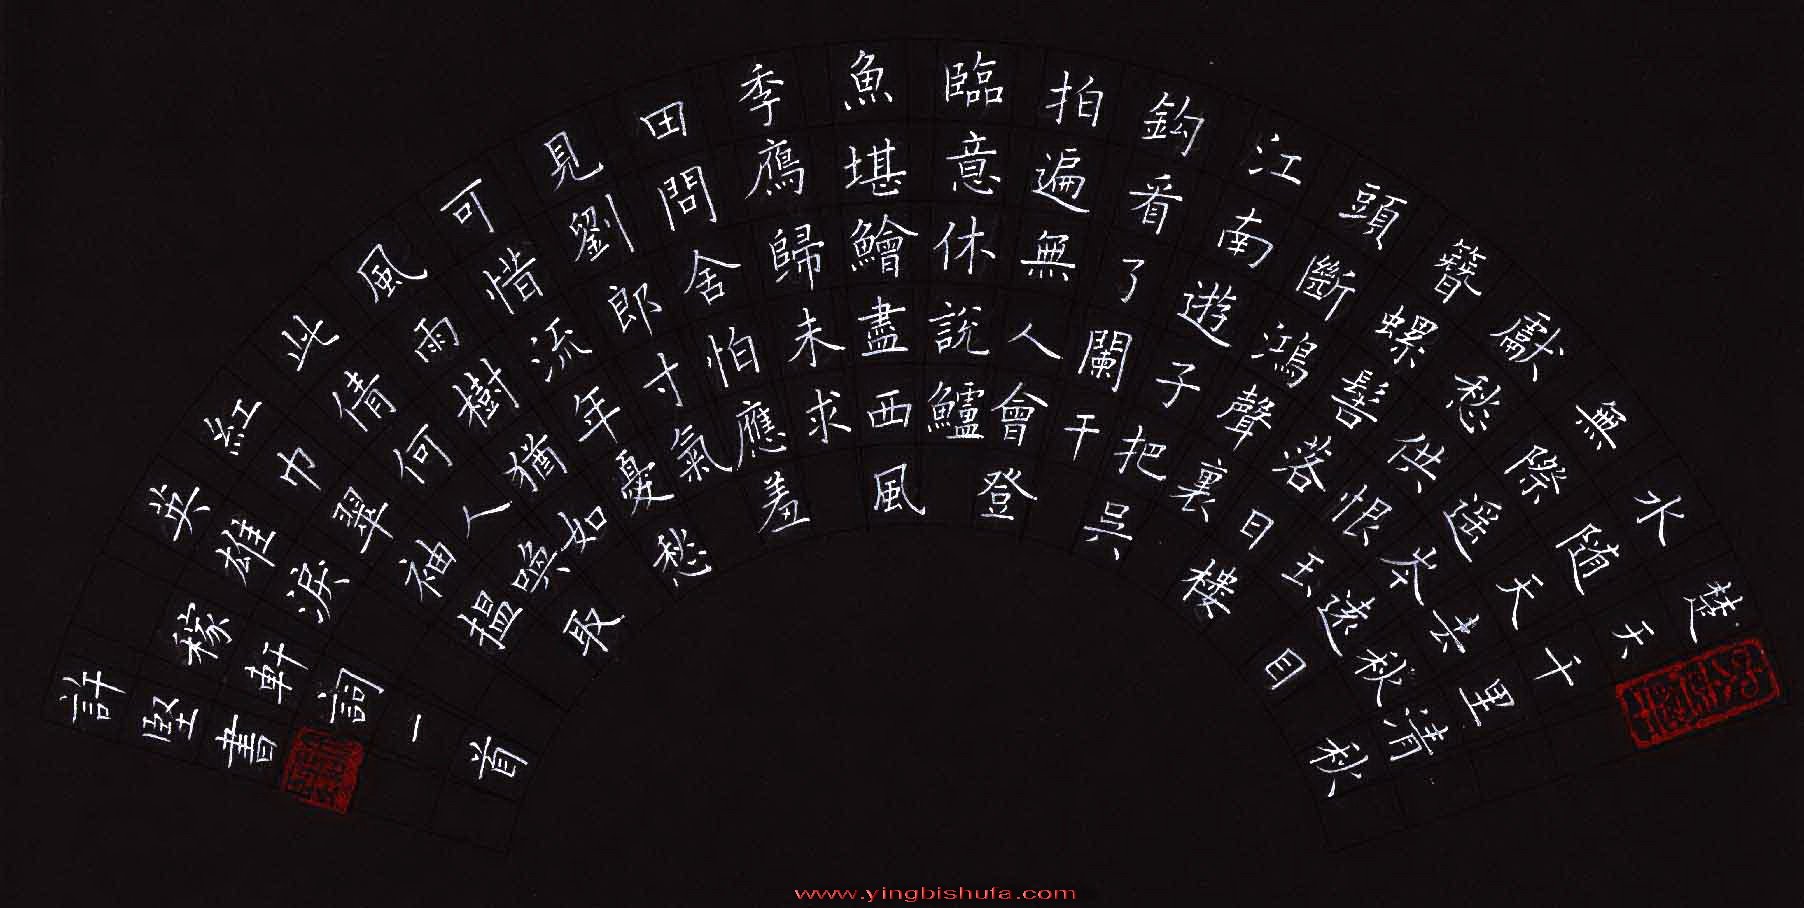 楚天千里清秋
水随天去秋
無際遥岑遠目
獻愁供恨玉
簪螺髻落日樓
頭斷鴻聲裏
江南遊子把吳
鈎看了闌干
拍遍無人會登
臨意休說鱸
魚堪鱠盡西風
季鷹歸未求
田問舍怕應羞
見劉郎寸氣
可惜流年憂愁
風雨樹猶如
此倩何人喚取
紅巾翠袖搵
英雄淚
稼軒詞一首
許堅書
www.yingbishufa.com